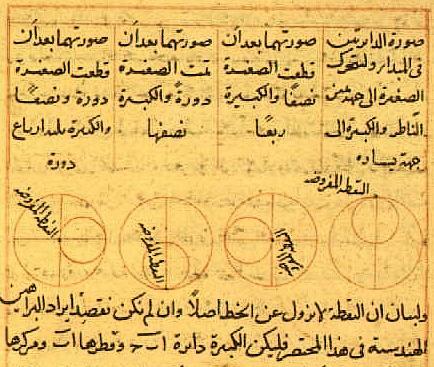 صورة الدايرتين
فى المبدا ولتتحرك
الصغيرة الى جهة يمين
الناظر والكبيرة الى
جهة يساره
صورتهما بعد ان
قطعت الصغيرة
نصفًا والكبيرة
ربعًا
صورتهما بعد ان
تمت الصغيرة
دورةً والكبيرة
نصفها
صورتهما بعد ان
قطعت الصغيرة
دورة ونصفًا
والكبيرة ثلثة ارباع
دورة
النقطة المفروضة
النقطة المفروضة
النقطة المفروضة
النقطة المفروضة
ولبيان ان النقطة لا تزول عن الخط اصلًا وان لم نكن نقصد ايراد البراهين
الهندسية فى هذا المختصر فليكن الكبيرة دايرة اب ح وقطرها اب ومركزها